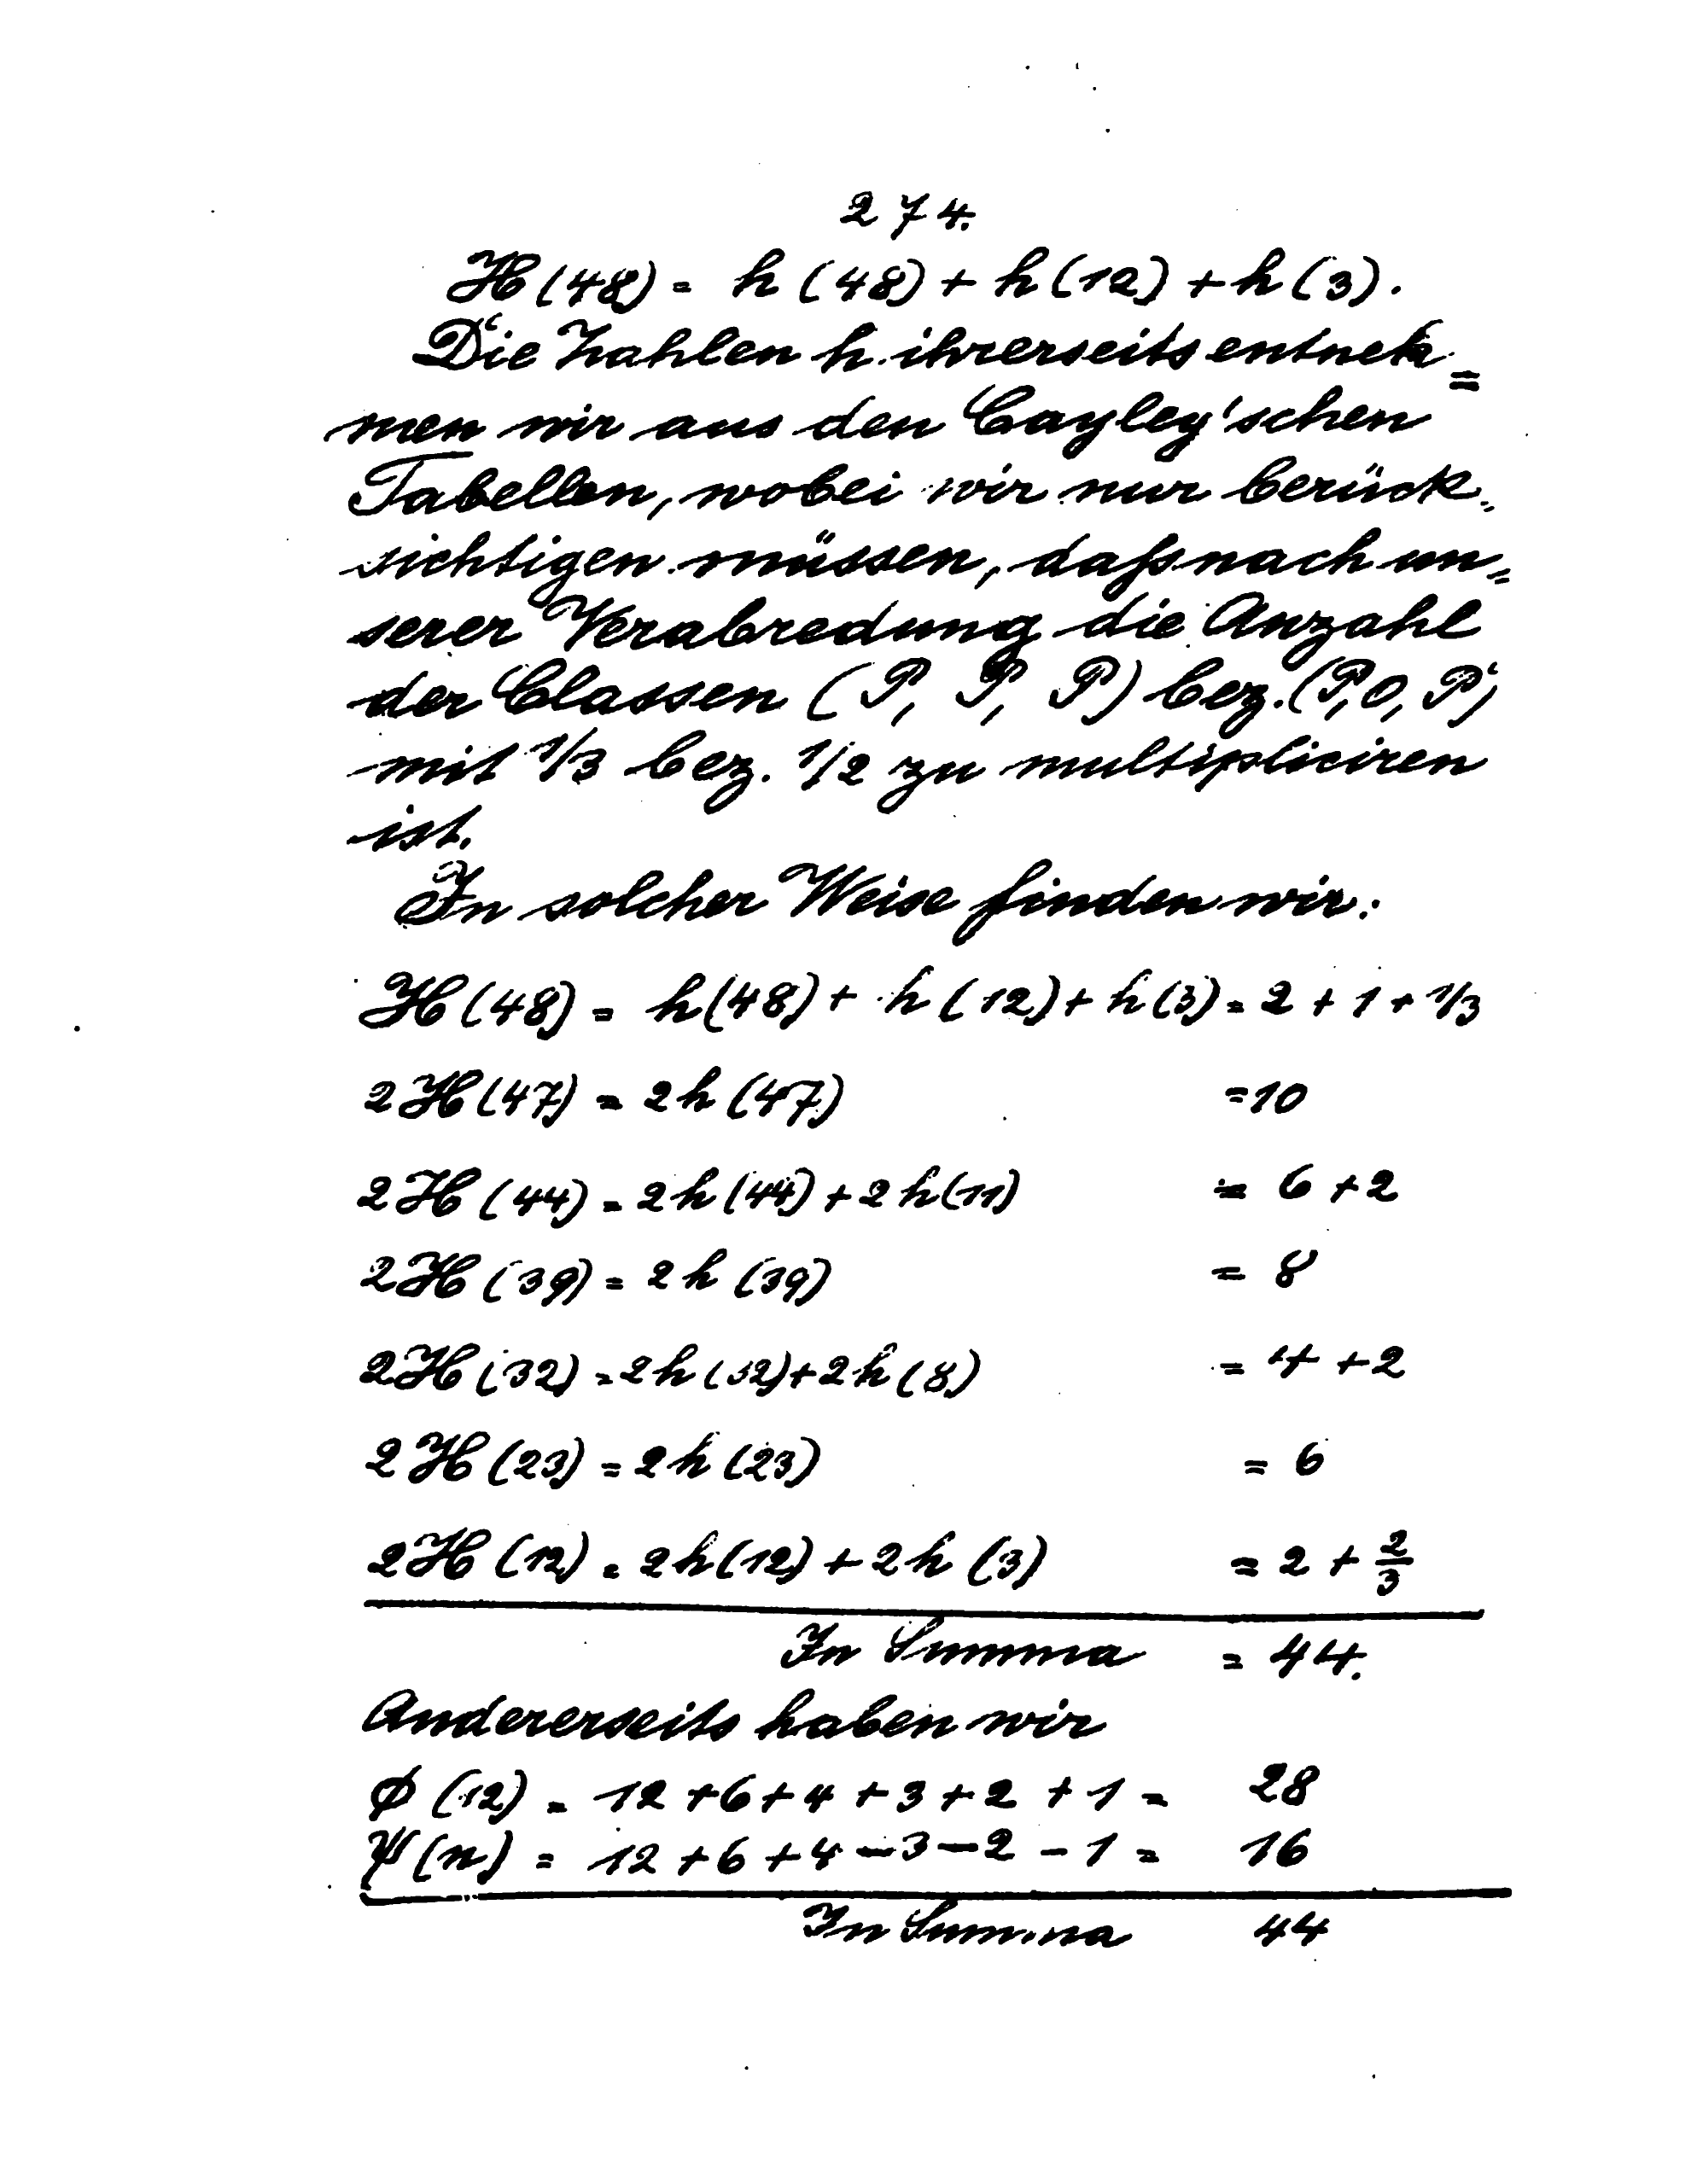 274.
H(48) = h(48) + h(12) + h(3).
Die Zahlen h ihrerseits entneh=
men wir aus den Cayley'schen
Tabellen, wobei wir nur berück=
sichtigen müssen, daß nach un=
serer Verabredung die Anzahl
der Classen (P, P, P) bez. (P, 0, P)
mit 1/3 bez. 1/2 zu multipliciren
ist.
In solcher Weise finden wir:
H(48) = h(48) + h(12) + h(3) = 2 + 1 + 1/3
2H(47) = 2h(47) = 10
2H(44) = 2h(44) + 2h(11) = 6 + 2
2H(39) = 2h(39) = 8
2H(32) = 2h(32) + 2h(8) = 4 + 2
2H(23) = 2h(23) = 6
2H(12) = 2h(12) + 2h(3) = 2 + 2/3
In Summa = 44.
Andererseits haben wir
Φ(12) = 12 + 6 + 4 + 3 + 2 + 1 = 28
Ψ(n) = 12 + 6 + 4 – 3 – 2 – 1 = 16
In Summa 44